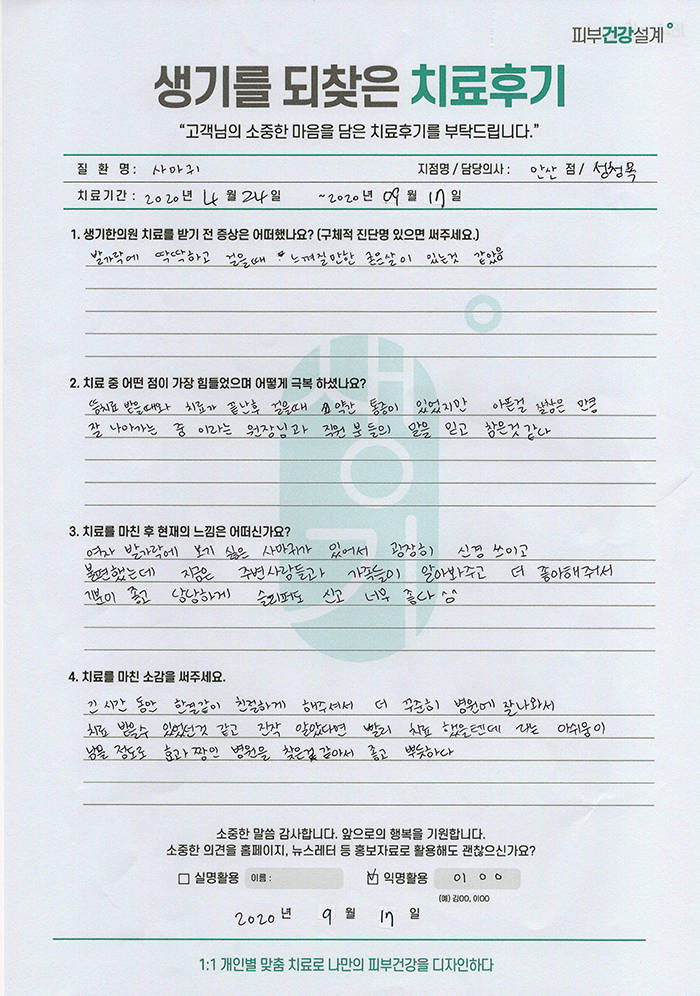 피부건강설계
생기를 되찾은 치료후기
“고객님의 소중한 마음을 담은 치료후기를 부탁드립니다.”
질 환 명 : 사마귀 지점명 / 담당의사 : 안산 점 /
치료기간 : 2020년 4월 24일 ~2020년 09월 17일
1. 생기한의원 치료를 받기 전 증상은 어떠했나요? (구체적 진단명 있으면 써주세요.)
발가락에 딱딱하고 걸을때 느껴질만한 굳은살이 있는것 같았음
2. 치료 중 어떤 점이 가장 힘들었으며 어떻게 극복 하셨나요?
뜸치료 받을때와 치료가 끝난후 걸을때 약간 통증이 있었지만 아픈걸 잘참은 만큼
잘 나아가는 중 이라는 원장님과 직원 분들의 말을 믿고 참은것 같다
3. 치료를 마친 후 현재의 느낌은 어떠신가요?
여자 발가락에 보기 싫은 사마귀가 있어서 굉장히 신경 쓰이고
불편했는데 지금은 주변사람들과 가족들이 알아봐주고 더 좋아해줘서
기분이 좋고 당당하게 슬리퍼도 신고 너무 좋다
4. 치료를 마친 소감을 써주세요.
긴 시간 동안 한결같이 친절하게 해주셔서 더 꾸준히 병원에 잘나와서
치료 받을수 있었던것 같고 진작 알았다면 빨리 치료 했을텐데 라는 아쉬움이
남을 정도로 효과 짱인 병원을 찾은것 같아서 좋고 뿌듯하다
생기
소중한 말씀 감사합니다. 앞으로의 행복을 기원합니다.
소중한 의견을 홈페이지, 뉴스레터 등 홍보자료로 활용해도 괜찮으신가요?
실명활용 이름 : 익명활용 이 o o
(예) 김OO, 이OO
2020년 9월 17일
1:1 개인별 맞춤 치료로 나만의 피부건강을 디자인하다